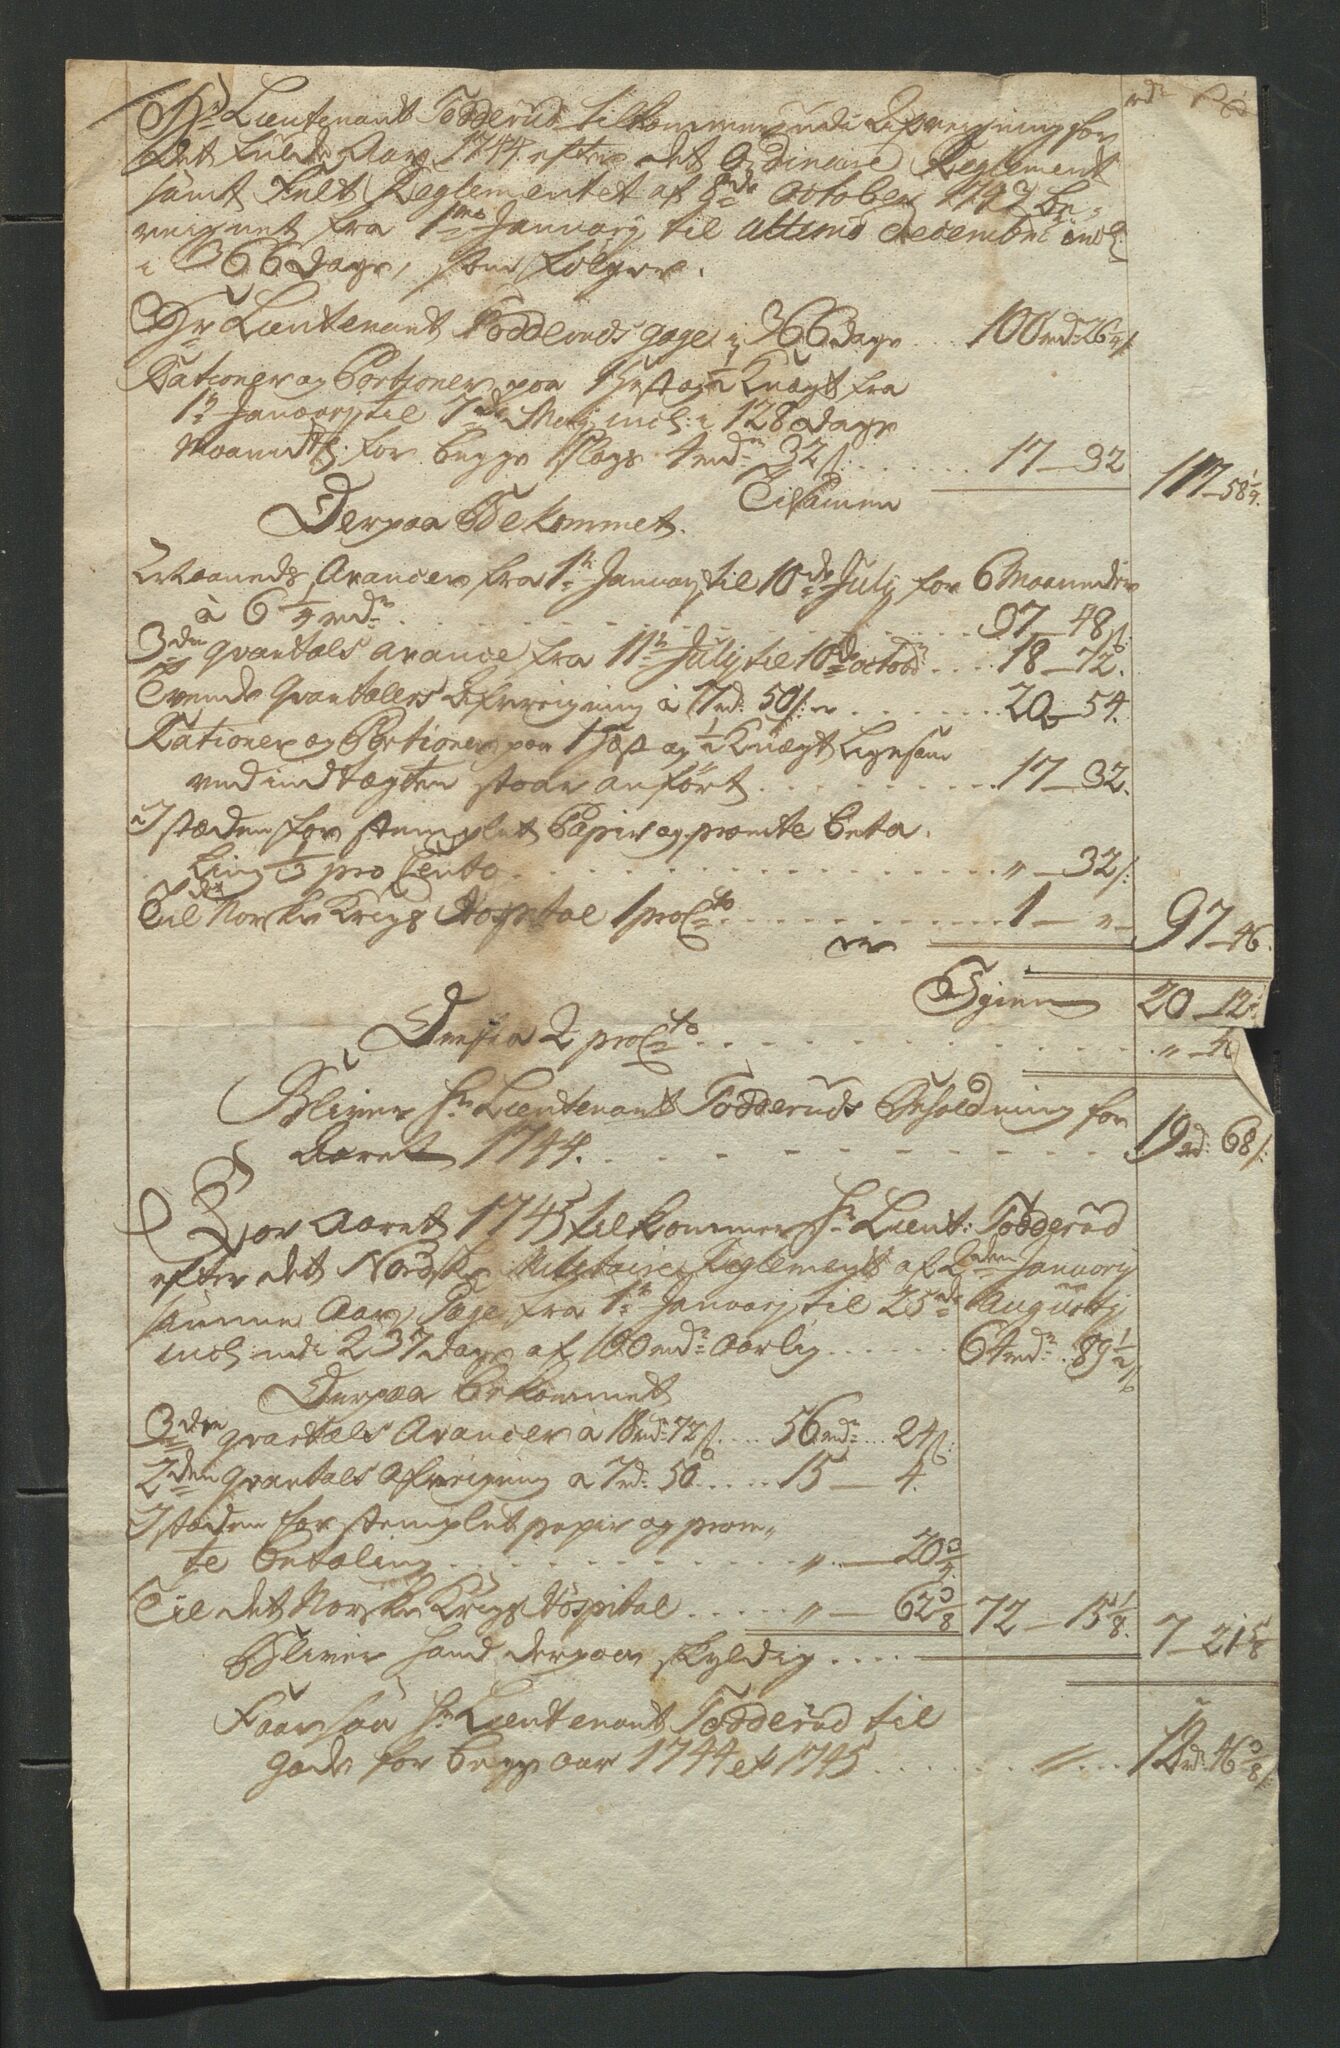 Hr Lieutenant Todderud tilkommer udi Afreigning for
det fulde Aar 1744 efter det Ordinaire Reglement
samt Felt Reglementet af 8de October 1742 be-
reignet fra 1mo January til ultimo December incl:
i 366 dage, som følger.
Hr Lieutenants Todderuds gage i 366 dage ... 100 rd: 26 1/4 s
Rationer og Portioner paa 1 Hæst og 1/2 Knægt fra
1te January til 7de Maj incl: i 128 dage
Maanedtl: for begge Slags 4 rdr 32 s: ...... 17 – 32
Tilsamen 117 – 58 1/4.
Derpaa Bekommet.
Maaneds Avancer fra 1te January til 10de July for 6 Maaneder
à 6 1/4 rdr ......... 37 – 48 s:
3de qvartals avance fra 11te July til 10de octobr .... 18 – 72.
Tvende Qvartalers Afreigning à 7 rd: 50 s: er ....... 20 – 54.
Rationer og Portioner paa 1 Hæst og 1/2 Knægt ligesom
ved indtægten staar anført .......... 17 – 32.
I stæden for stemplet Papir og promte beta-
ling 1/3 pro Cento .......... " – 32 s:
Til det Norske Krigs Hospital 1 pro Cto .......... 1 – " –
er 97 – 46.
Igien 20 – 12
2 pro Cto ..........
Bliver Hr Lieutenant Todderuds Beholdning for
Aaret 1744. .......... 19 rd: 68 s:
For Aaret 1745 tilkommer Hr Lieut: Todderud
efter det Nordske Militaire Reglement af 2den January
samme Aar, Gage fra 1te January til 25de Augusty
incl: udi 237 dage af 100 rdr aarlig ...... 64 rdr. 89 1/2 s
Derpaa bekommet
3de qvartals Avancer à 18 rdr 72 s .... 56 rdr ... 24 s:
2den qvartals Afreigning a 7 rd: 50 ..... 15 – 4.
I stæden for stemplet papir og prom-
te betaling .......... " – 20 3/4.
Til det Norske Krigs Hospital ..... " – 62 3/8 72 – 15 1/8.
Bliver hand derpaa skyldig .... 7 – 21 5/8
Faar saa Hr Lieutenant Todderud til
gode for begge aar 1744 et 1745 ...... " ... 12 rd: 46 3/8 s: